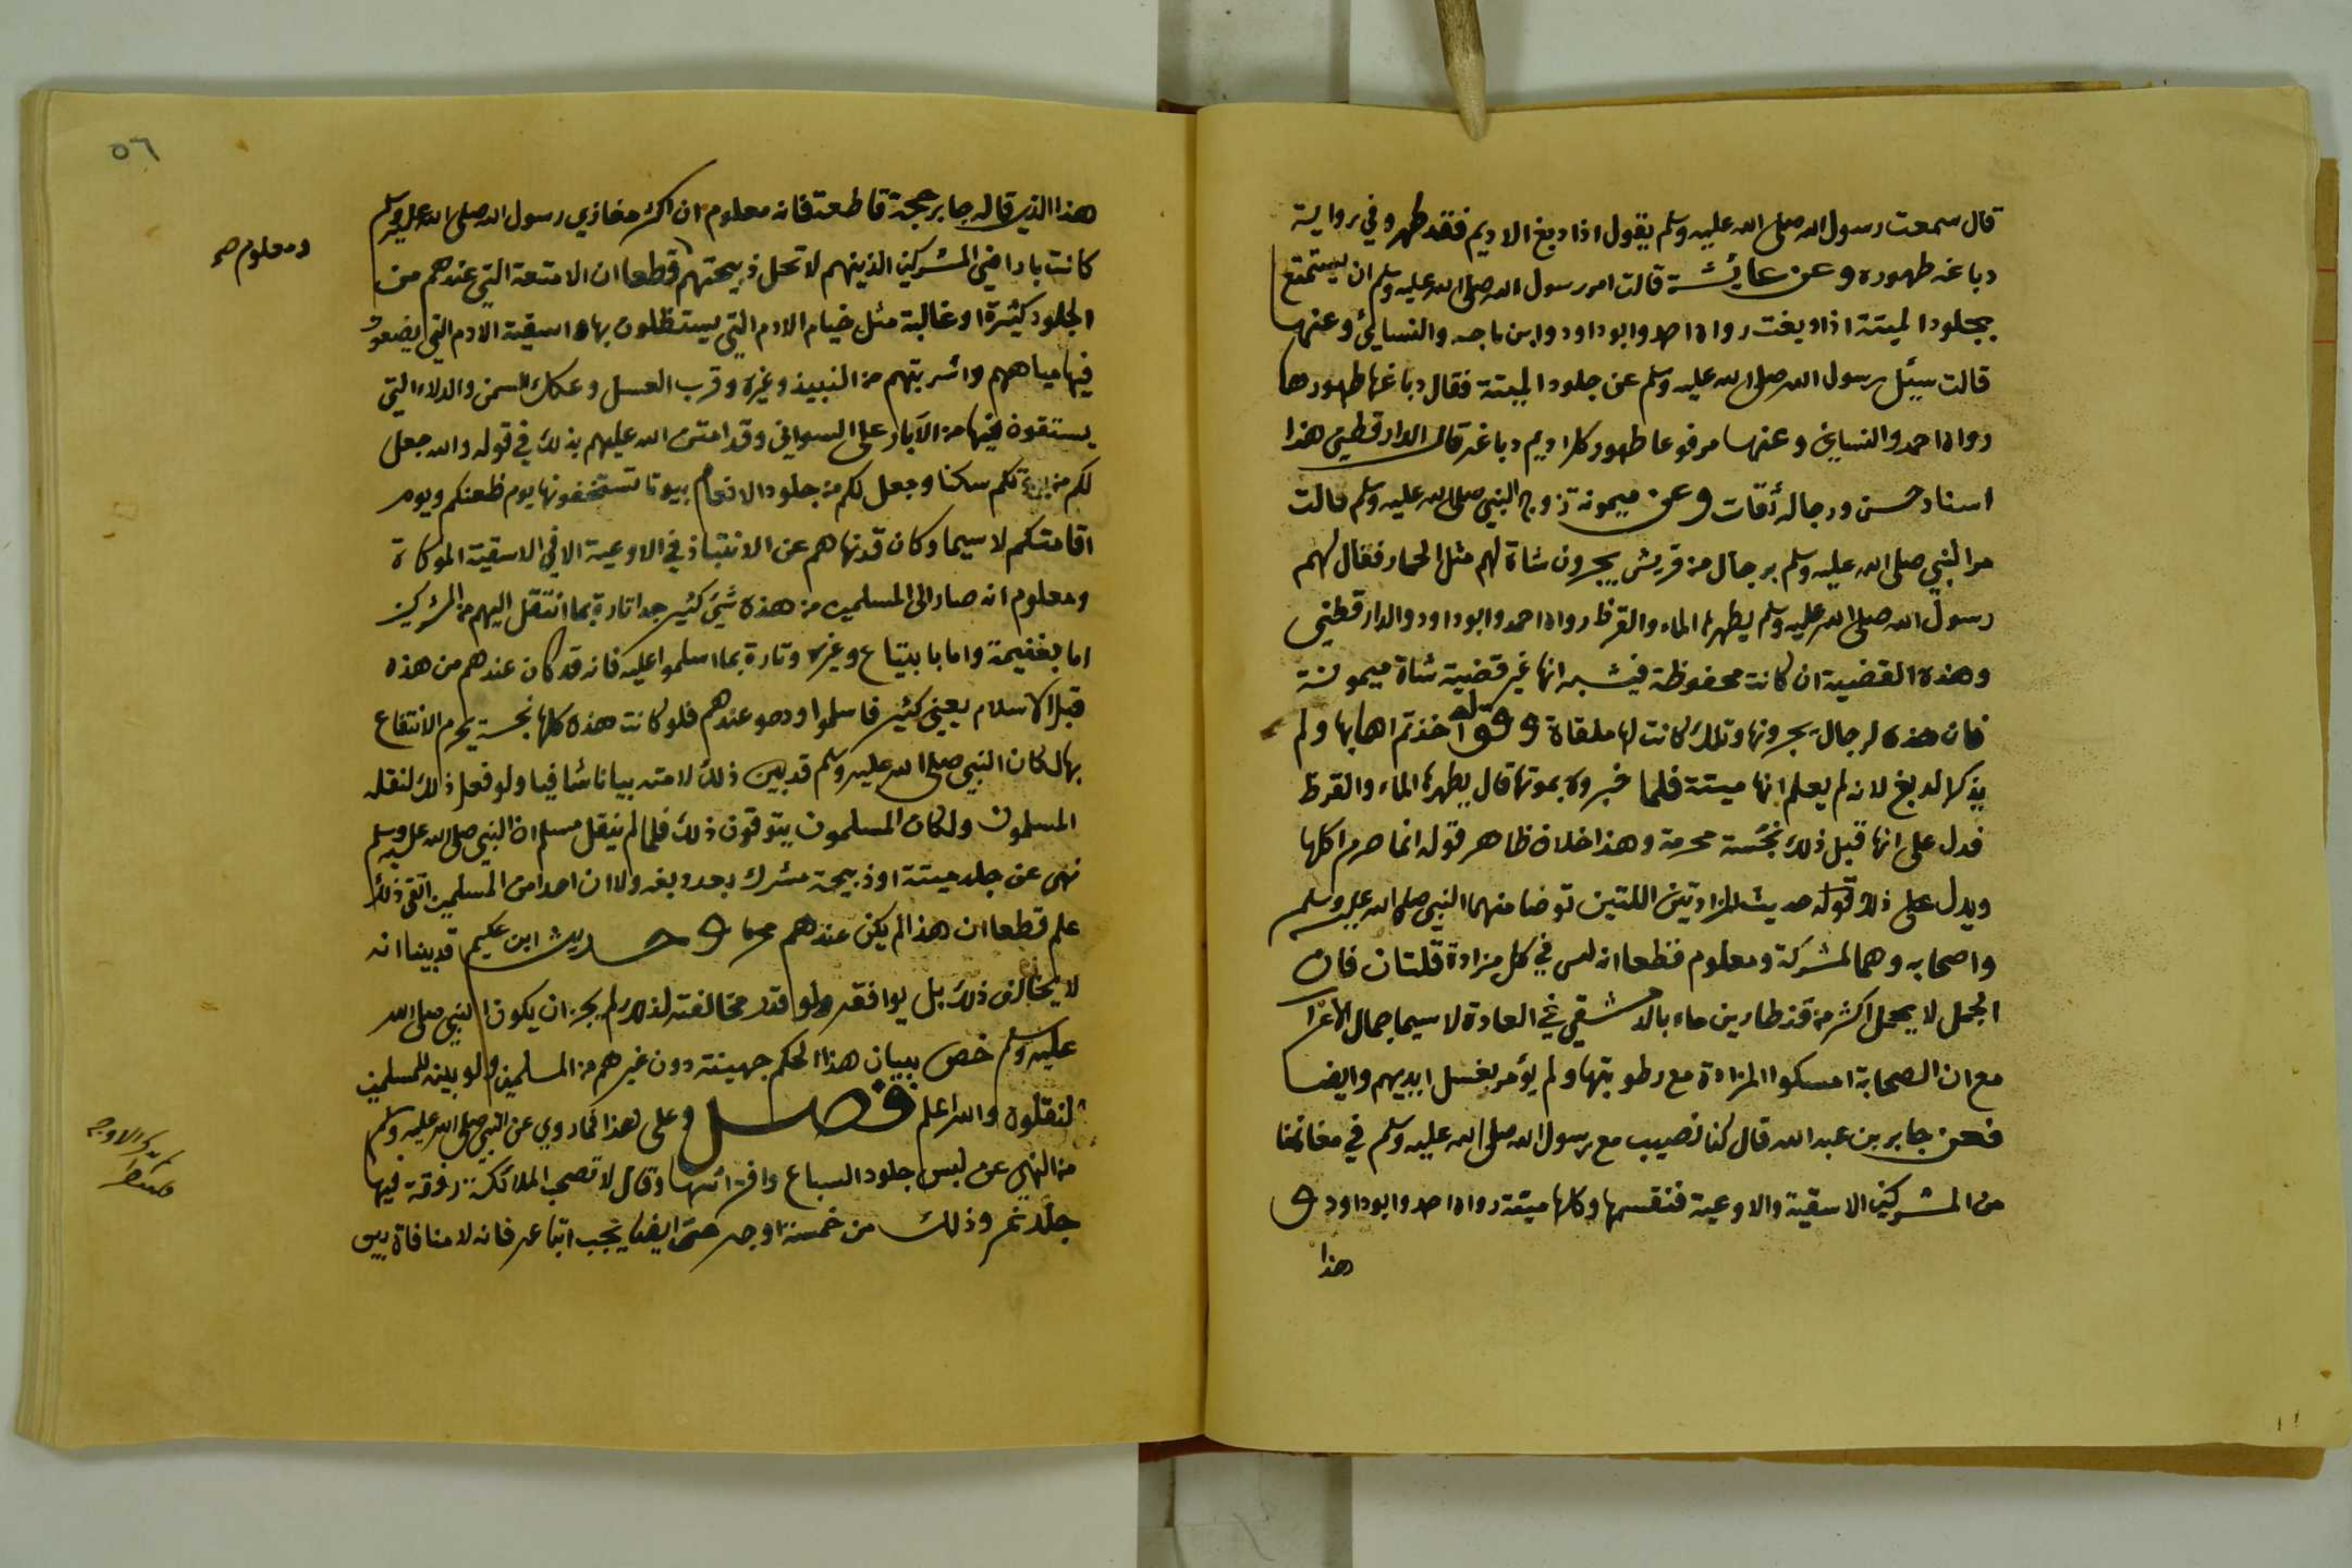 قال سمعت رسول الله صلى الله عليه وسلم يقول اذا دبغ الاديم فقد طهر وفي رواية
دباغه طهوره وعن عايشة قالت امر رسول الله صلى الله عليه وسلم ان يستمتع
بجلود الميتة اذا دبغت رواه احمد وابو داود وابن ماجه والنسائي وعنها
قالت سيئل رسول الله صلى الله عليه وسلم عن جلود الميتة فقال دباغها طهورها
رواه احمد والنساي وعنها مرفوعا طهور كل اديم دباغه قال الدارقطني هذا
اسناد حسن ورجاله ثقات وعن ميمونة زوج النبي صلى الله عليه وسلم قالت
مر النبي صلى الله عليه وسلم برجال من قريش يجرون شاة لهم مثل الحمار فقال لهم
رسول الله صلى الله عليه وسلم يطهرها الماء والقرظ رواه احمد وابو داود والدارقطني
وهذه القضية ان كانت محفوظة فيشبه انها غير قضية شاة ميمونة
فان هذه لرجال يجرونها وتلك كانت لها ملقاة وقوله اخذتم اهابها ولم
يذكر الدبغ لانه لم يعلم انها ميتة فلما خبروه بموتها قال يطهرها الماء والقرظ
فدل على انها قبل ذلك نجسة محرمة وهذا خلاف ظاهر قوله انما حرم اكلها
ويدل على ذلك قوله حديث المزادتين اللتين توضا منهما النبي صلى الله عليه وسلم
واصحابه وهما لمشركة ومعلوم قطعا انه ليس في كل مزادة قلتان فان
الجمل لا يحمل اكثر من قنطارين ماء بالدمشقي في العادة لا سيما جمال الاعراب
مع ان الصحابة امسكوا المزادة مع رطوبتها ولم يؤمر بغسل ايديهم وايضا
فعن جابر بن عبد الله قال كنا نصيب مع رسول الله صلى الله عليه وسلم في مغانمنا
من المشركين الاسقية والاوعية فنقسمها وكلها ميتة رواه احمد وابو داود و
هذا
٥٦
هذا الذي قاله جابر حجة قاطعة فانه معلوم ان اكثر مغازي رسول الله صلى الله عليه وسلم
كانت باراضي المشركين الذينهم لا تحل ذبيحتهم قطعا ان الامتعة التي عندهم من
ومعلوم صح
الجلود كثيرة او غالبة مثل خيام الادم التي يستظلون بها واسقية الادم التي يضعون
فيها مياههم واشربتهم من النبيذ وغيره وقرب العسل وعكك السمن والدلاء التي
يستقون فيها من الآبار على السواني وقد امتن الله عليهم بذلك في قوله والله جعل
لكم من بيوتكم سكنا وجعل لكم من جلود الانعام بيوتا تستخفونها يوم ظعنكم ويوم
اقامتكم لا سيما وكان قد نهاهم عن الانتباذ في الاوعية الا في الاسقية الموكاة
ومعلوم انه صار الى المسلمين من هذه شيء كثير جدا تارة بما انتقل اليهم من المشركين
اما بغنيمة واما بابتياع وغيره وتارة بما اسلموا عليه فانه قد كان عندهم من هذه
قبل الاسلام يعني كثير فاسلموا وهو عندهم فلو كانت هذه كلها نجسة يحرم الانتفاع
بها لكان النبي صلى الله عليه وسلم قد بين ذلك لامته بيانا شافيا ولو فعل ذلك لنقله
المسلمون ولكان المسلمون يتوقون ذلك فلما لم ينقل مسلم ان النبي صلى الله عليه وسلم
نهى عن جلد ميتة او ذبيحة مشرك بعد دبغه ولا ان احدا من المسلمين اتقى ذلك
علم قطعا ان هذا لم يكن عندهم محرما وحديث ابن عكيم قد بينا انه
لا يخالف ذلك بل يوافقه ولو قدر مخالفته لذلك لم يجز ان يكون النبي صلى الله
عليه وسلم خص ببيان هذا الحكم جهينة دون غيرهم من المسلمين ولو بينه للمسلمين
لنقلوه والله اعلم فصل وعلى هذا فما روي عن النبي صلى الله عليه وسلم
من النهي عن لبس جلود السباع وافتراشها وقال لا تصحب الملائكة رفقة فيها
جلد نمر وذلك من خمسة اوجه حتى ايضا يجب اتباعه فانه لا منافاة بين